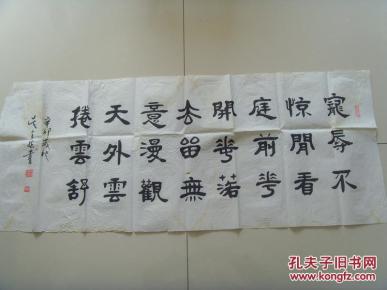 寵辱不
惊閒看
庭前花
開花落
去留無
意漫觀
天外雲
捲雲舒
辛卯
孔夫子旧书网